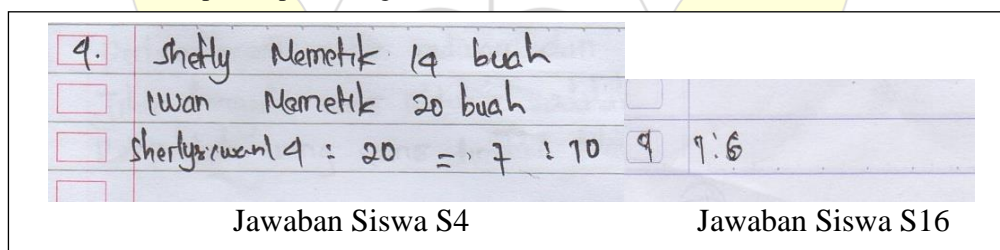 4. Shetly Memetik 14 buah
Iwan Memetik 20 buah
Sherly:iwan14 : 20 = 7 : 10
4 7:6
Jawaban Siswa S4
Jawaban Siswa S16